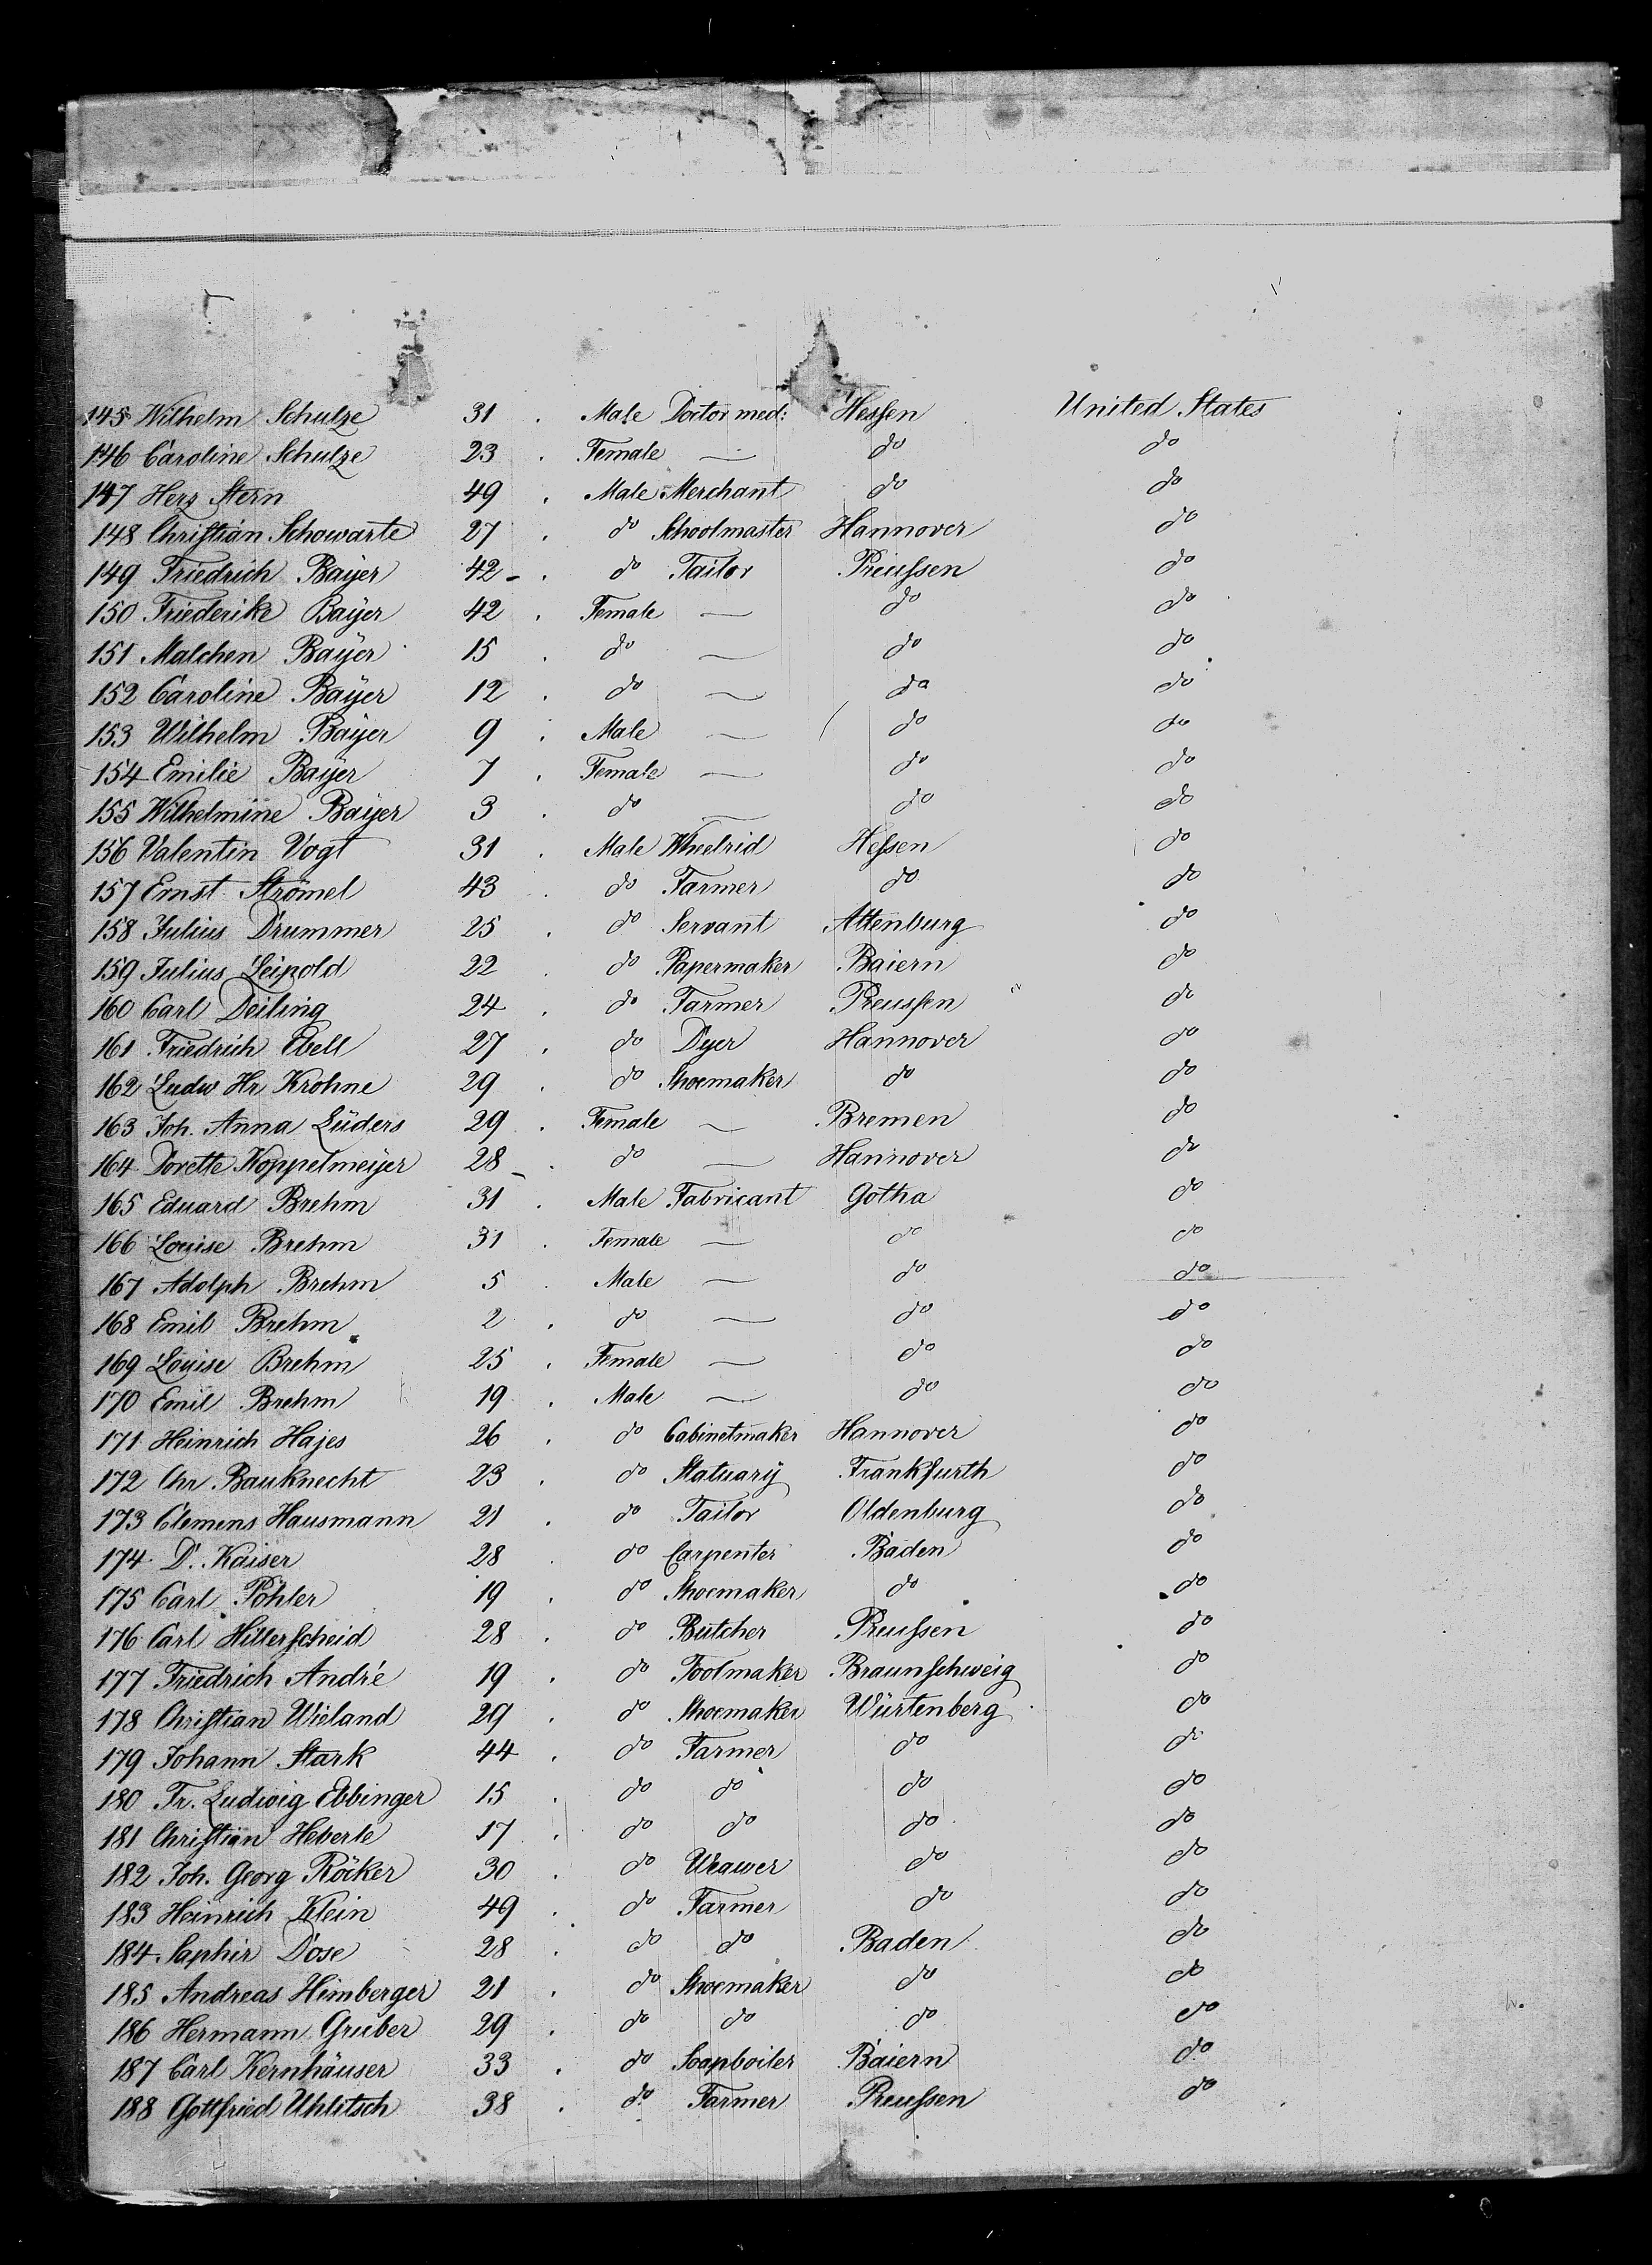 145 Wilhelm Schulze 31 . Male Doctor med: Hessen United States
146 Caroline Schulze 23 . Female — do do
147 Herz Stern 49 . Male Merchant do do
148 Christian Schowarte 27 . do Schoolmaster Hannover do
149 Friedrich Bayer 42 . do Tailor Preussen do
150 Friederike Bayer 42 . Female — do do
151 Malchen Bayer 15 . do — do do
152 Caroline Bayer 12 . do — do do
153 Wilhelm Bayer 9 . Male — do do
154 Emilie Bayer 7 . Female — do do
155 Wilhelmine Bayer 3 . do — do do
156 Valentin Vogt 31 . Male Wheelrid Hessen do
157 Ernst Strömel 43 . do Farmer do do
158 Julius Drummer 25 . do Servant Altenburg do
159 Julius Leipold 22 . do Papermaker Baiern do
160 Carl Deiling 24 . do Farmer Preussen do
161 Friedrich Ebell 27 . do Dyer Hannover do
162 Ludw Hr Krohne 29 . do Shoemaker do do
163 Joh. Anna Lüders 29 . Female — Bremen do
164 Dorette Koppelmeyer 28 . do — Hannover do
165 Eduard Brehm 31 . Male Fabricant Gotha do
166 Louise Brehm 31 . Female — do do
167 Adolph Brehm 5 . Male — do do
168 Emil Brehm 2 . do — do do
169 Louise Brehm 25 . Female — do do
170 Emil Brehm 19 . Male — do do
171 Heinrich Hajes 26 . do Cabinetmaker Hannover do
172 Chr. Bauknecht 23 . do Statuary Frankfurth do
173 Clemens Hausmann 21 . do Tailor Oldenburg do
174 D. Kaiser 28 . do Carpenter Baden do
175 Carl Pöhler 19 . do Shoemaker do do
176 Carl Hillerscheid 28 . do Butcher Preussen do
177 Friedrich André 19 . do Toolmaker Braunschweig do
178 Christian Wieland 29 . do Shoemaker Würtenberg do
179 Johann Stark 44 . do Farmer do do
180 Fr. Ludwig Ebbinger 15 . do do do do
181 Christian Heberle 17 . do do do do
182 Joh. Georg Röcker 30 . do Weawer do do
183 Heinrich Klein 49 . do Farmer do do
184 Saphir Dose 28 . do do Baden do
185 Andreas Himberger 21 . do Shoemaker do do
186 Hermann Gruber 29 . do do do do
187 Carl Kernhäuser 33 . do Soapboiler Baiern do
188 Gottfried Uhlitsch 38 . do Farmer Preussen do